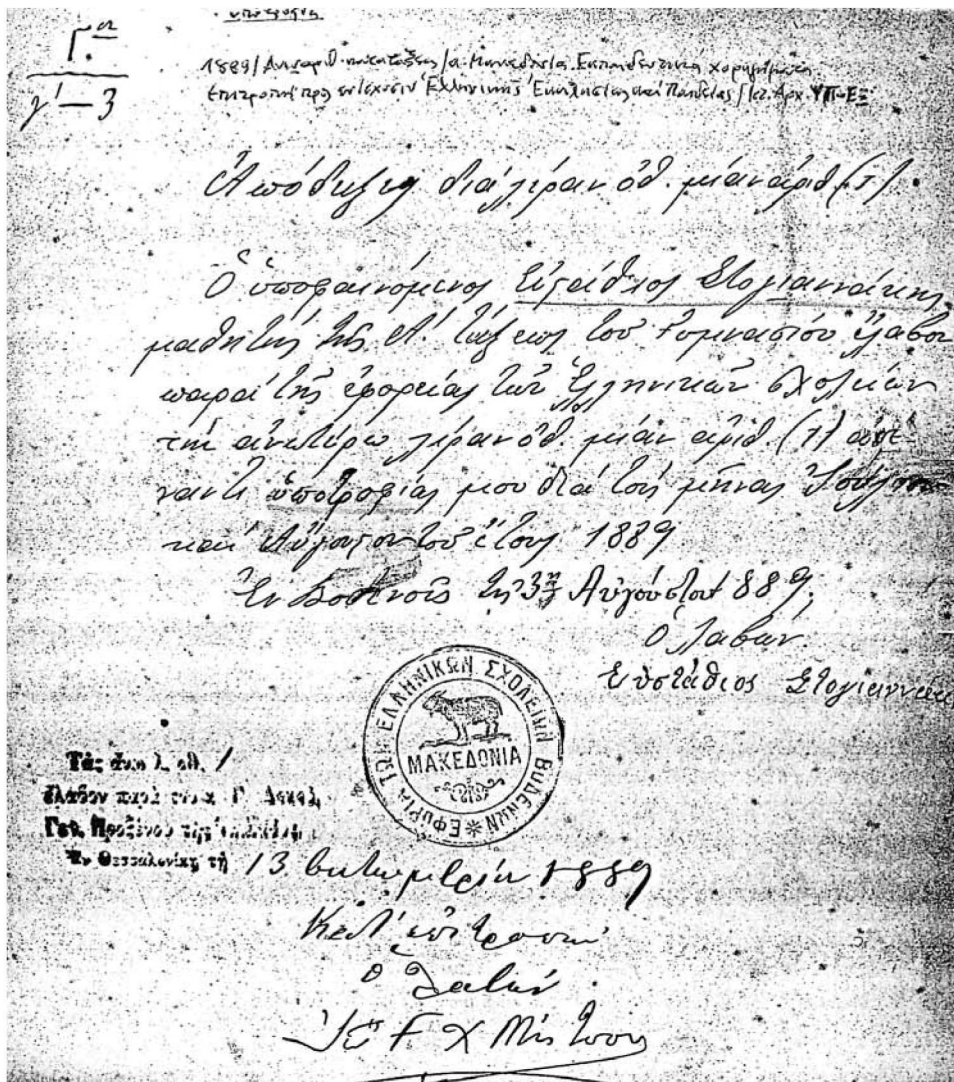 ὑποτροφία
Γ.α
γ' – 3
1889 / Αναριθ. κατατάξεως / α. Μακεδονία. Εκπαιδευτικά χορηγήματα
Επιτροπή προς ενίσχυσιν Ἑλληνικῆς Ἐκκλησίας καὶ Παιδείας / Ιστ. Αρχ. ΥΠ-ΕΞ
Ἀπόδειξις διὰ λίραν ὀθ. μίαν ἀριθ. (1).
Ὁ ὑποφαινόμενος Εὐστάθιος Στογιαννάκης
μαθητὴς τῆς Α'. τάξεως τοῦ Γυμνασίου ἔλαβον
παρὰ τῆς ἐφορείας τῶν Ἑλληνικῶν σχολείων
τὴν ἀνωτέρω λίραν ὀθ. μίαν ἀριθ. (1) ἀπέ-
ναντι ὑποτροφίας μου διὰ τοὺς μῆνας Ἰούλιον
καὶ Αὔγουστον τοῦ ἔτους 1889
Ἐν Βοδενοῖς τῇ 3ῃ Αὐγούστου 889.
Ὁ λαβών
Εὐστάθιος Στογιαννάκης
ΕΦΟΡΙΑ ΤΩΝ ΕΛΛΗΝΙΚΩΝ ΣΧΟΛΕΙΩΝ ΒΟΔΕΝΩΝ
ΜΑΚΕΔΟΝΙΑ
Τὰς ἄνω λ. ὀθ. 1
ἔλαβον παρὰ τοῦ κ. Γ. Δοκοῦ,
Γεν. Προξένου τῆς Ἑλλάδος
Ἐν Θεσσαλονίκῃ τῇ 13 ὀκτωμβρίου 1889
Κατ' ἐπιτροπὴν
ὁ Λαβών
Γ Χ Μήτσου